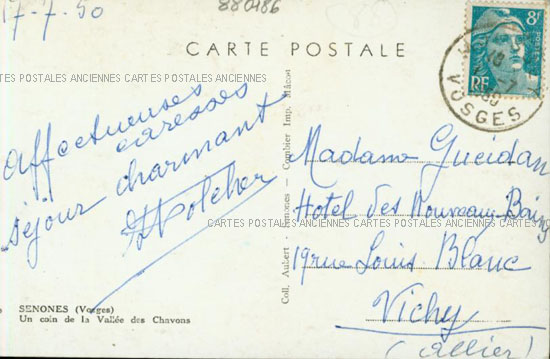 17-7-50
880486
CARTE POSTALE
8F
POSTES
RF
VOSGES
CARTES POSTALES ANCIENNES CARTES POSTALES ANCIENNES CARTES POSTALES ANCIENNES CARTES POSTALES ANCIENNES
Affectueuses
caresses
séjour charmant
Madame Gueidan
Hotel des Nouveaux Bains
CARTES POSTALES ANCIENNES CARTES POSTALES ANCIENNES CARTES POSTALES ANCIENNES
19 rue Louis Blanc
Vichy
(Allier)
Coll. Aubert - Senones - Combier Imp. Mâcon
SENONES (Vosges)
Un coin de la Vallée des Chavons